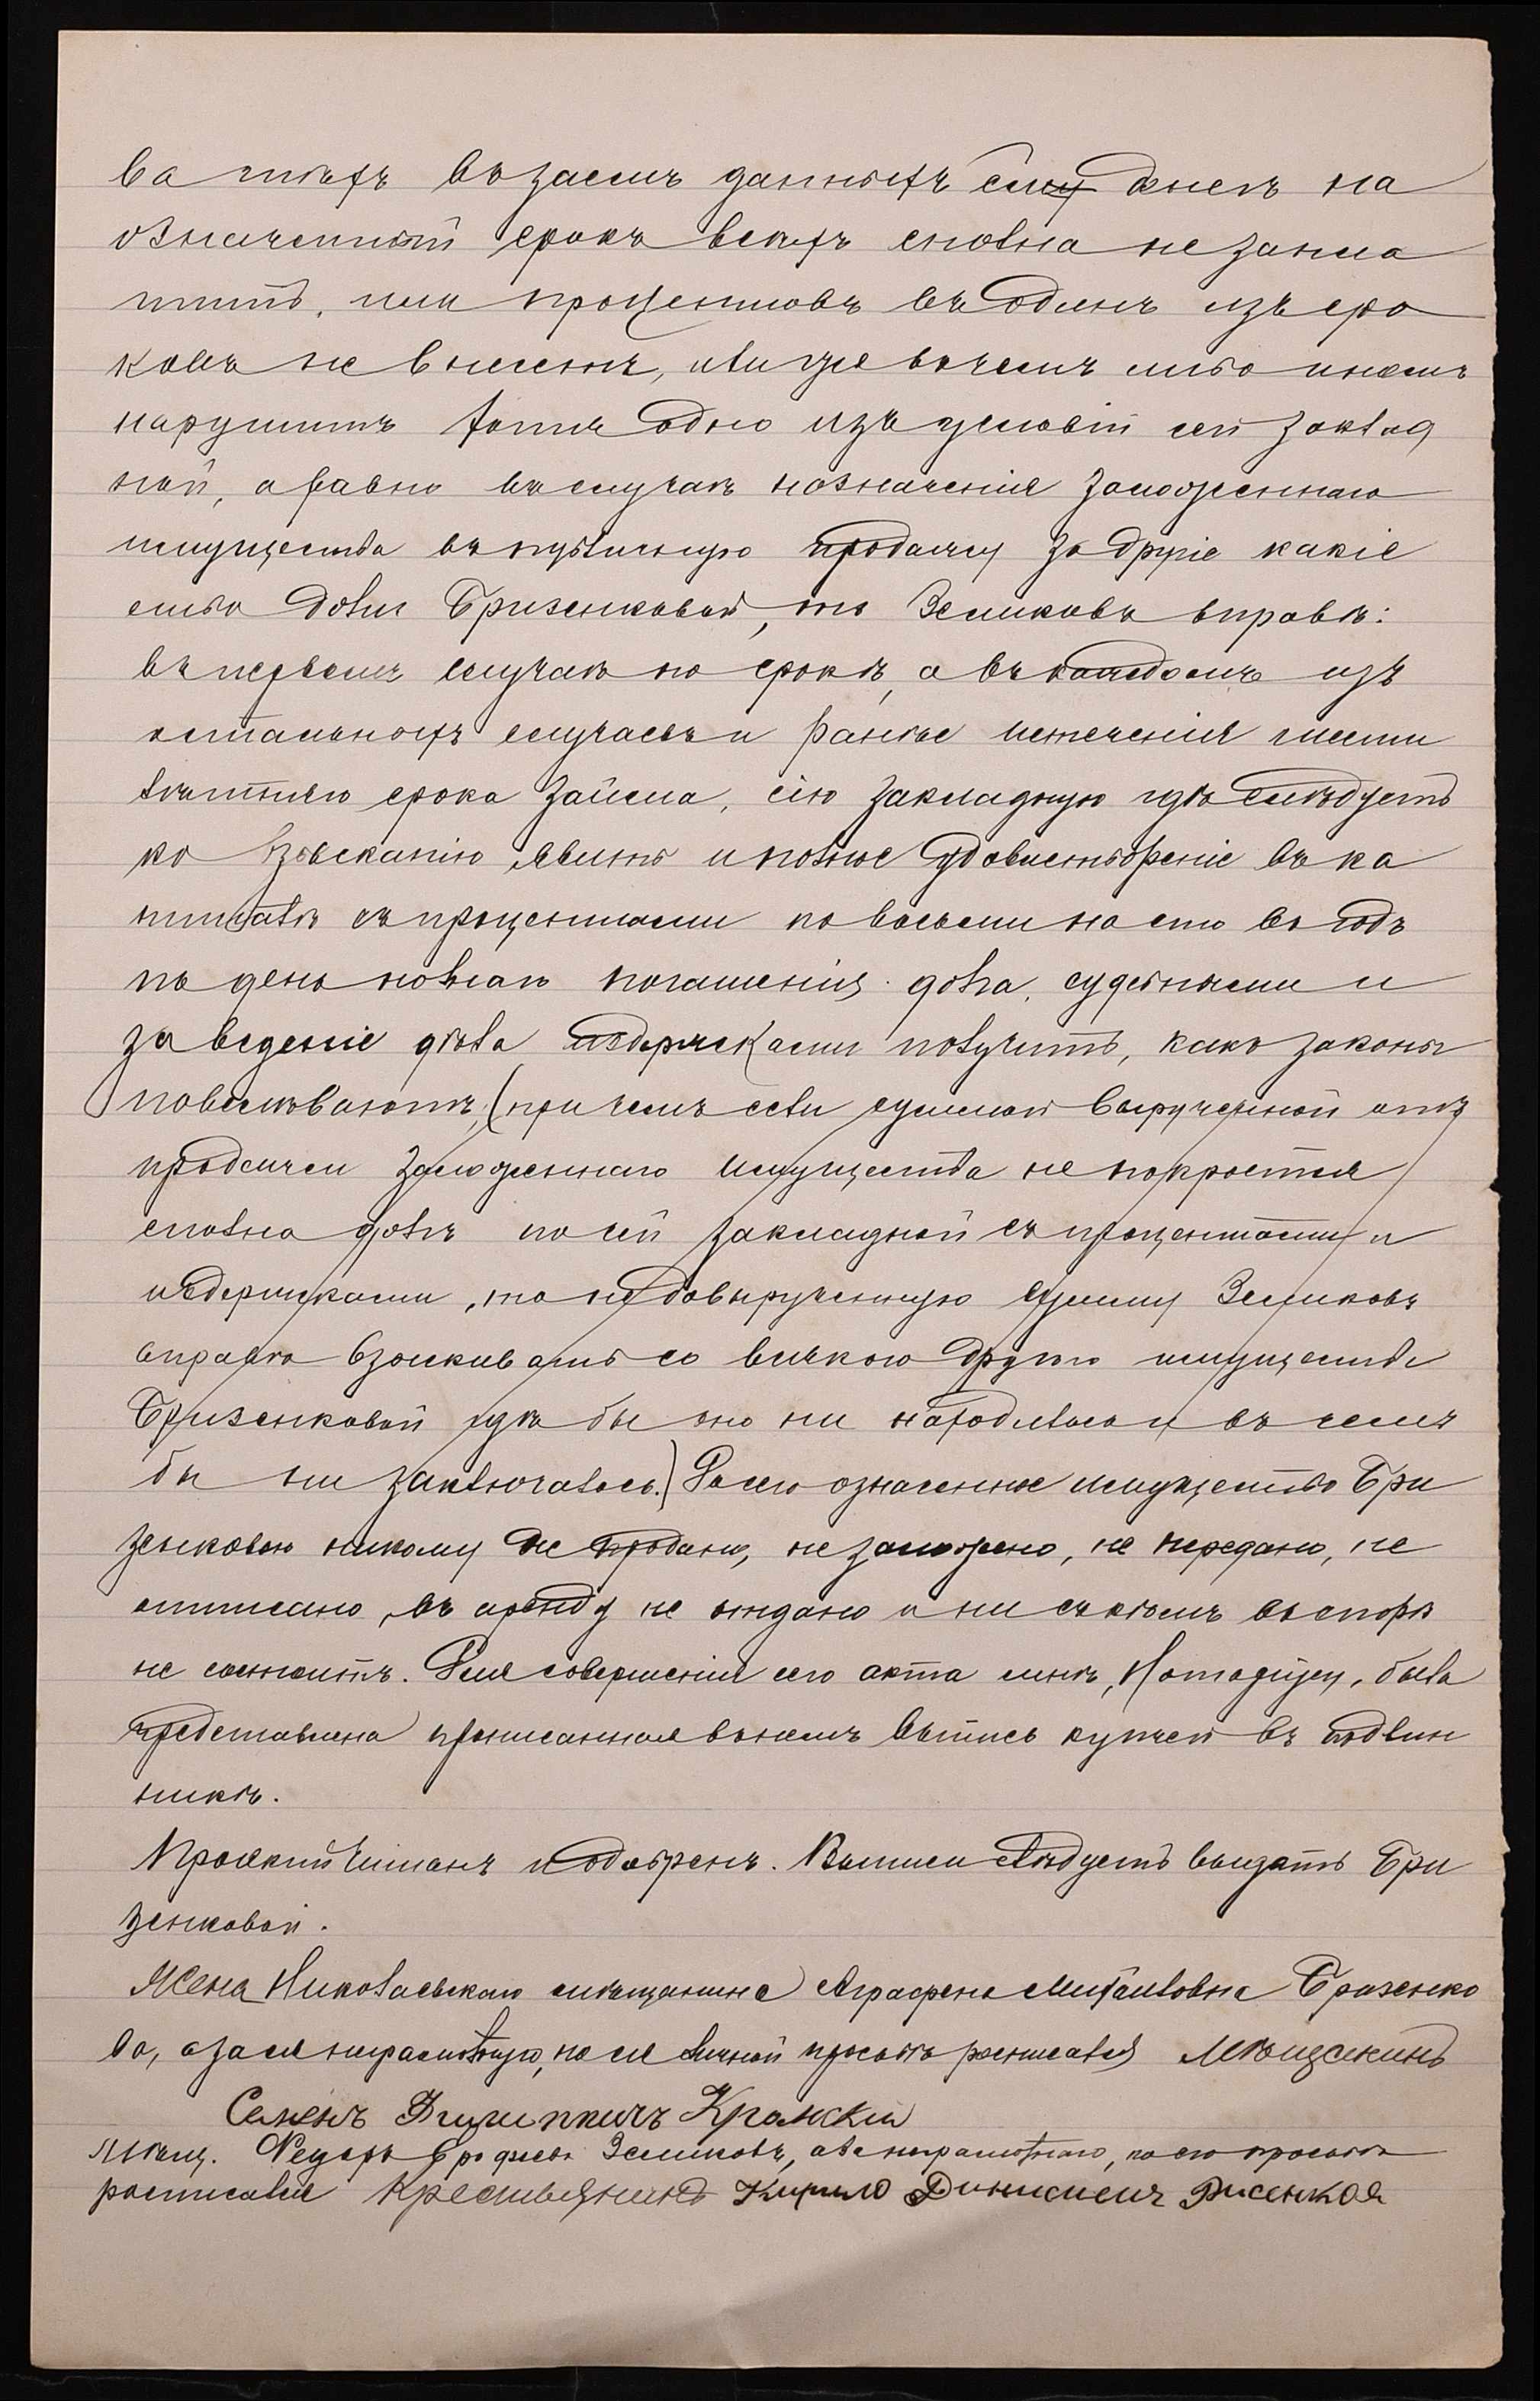 ва тѣхъ въ заемъ данныхъ ему денегъ на
означенный срокъ всѣхъ сполна не запла
титъ, или процентовъ въ одинъ изъ сро
ковъ не внесетъ, или же въ чемъ либо иномъ
нарушитъ хотя одно изъ условій сей заклад
ной, а равно въ случаѣ назначенія заложеннаго
имущества въ публичную продажу за другіе какіе
либо долги Бризенковой, тоЗемиковъ вправѣ:
въ первомъ случаѣ по срокѣ, а въ каждомъ изъ
остальныхъ случаевъ и ранѣе истеченія шести
лѣтняго срока займа, сію закладную гдѣ слѣдуетъ
ко взысканію явить и полное удовлетвореніе въ ка
питалѣ съ процентами по восьми на сто въ годъ
по день полнаго погашенія долга, судебными и
за веденіе дѣла издержками получить, какъ законы
повелѣваютъ, (при чемъ если суммой вырученной отъ
продажи заложеннаго имущества не покроется
сполна долгъ по сей закладной съ процентами и
издержками, то недовырученную сумму Земиковъ
вправѣ взыскивать со всякаго другого имущества
Бризенковой гдѣ бы оно ни находилось и въ чемъ
бы ни заключалось.) До сего означенное имущество Бри
зенковою никому не продано, не заложено, не передано, не
описано, въ аренду не отдано и ни съ кѣмъ въ спорѣ
не состоитъ. Для совершенія сего акта мнѣ, Нотаріусу, была
представлена прописанная въ немъ выпись купчей въ подлин
никѣ.
Проэктъ читанъ и одобренъ. Выписи слѣдуетъ выдать Бри
зенковой.
Жена Николаевскаго мѣщанина Аграфена Михайловна Бризенко
ва, а за нея неграмотную, по ея личной просьбѣ росписался Мѣщанинъ
Семенъ Филипичъ Кромскій
Мѣщ. Федоръ Ерофеевъ Земиковъ, а за неграмотнаго, по его просьбѣ
росписался Крестьянинъ Кирило